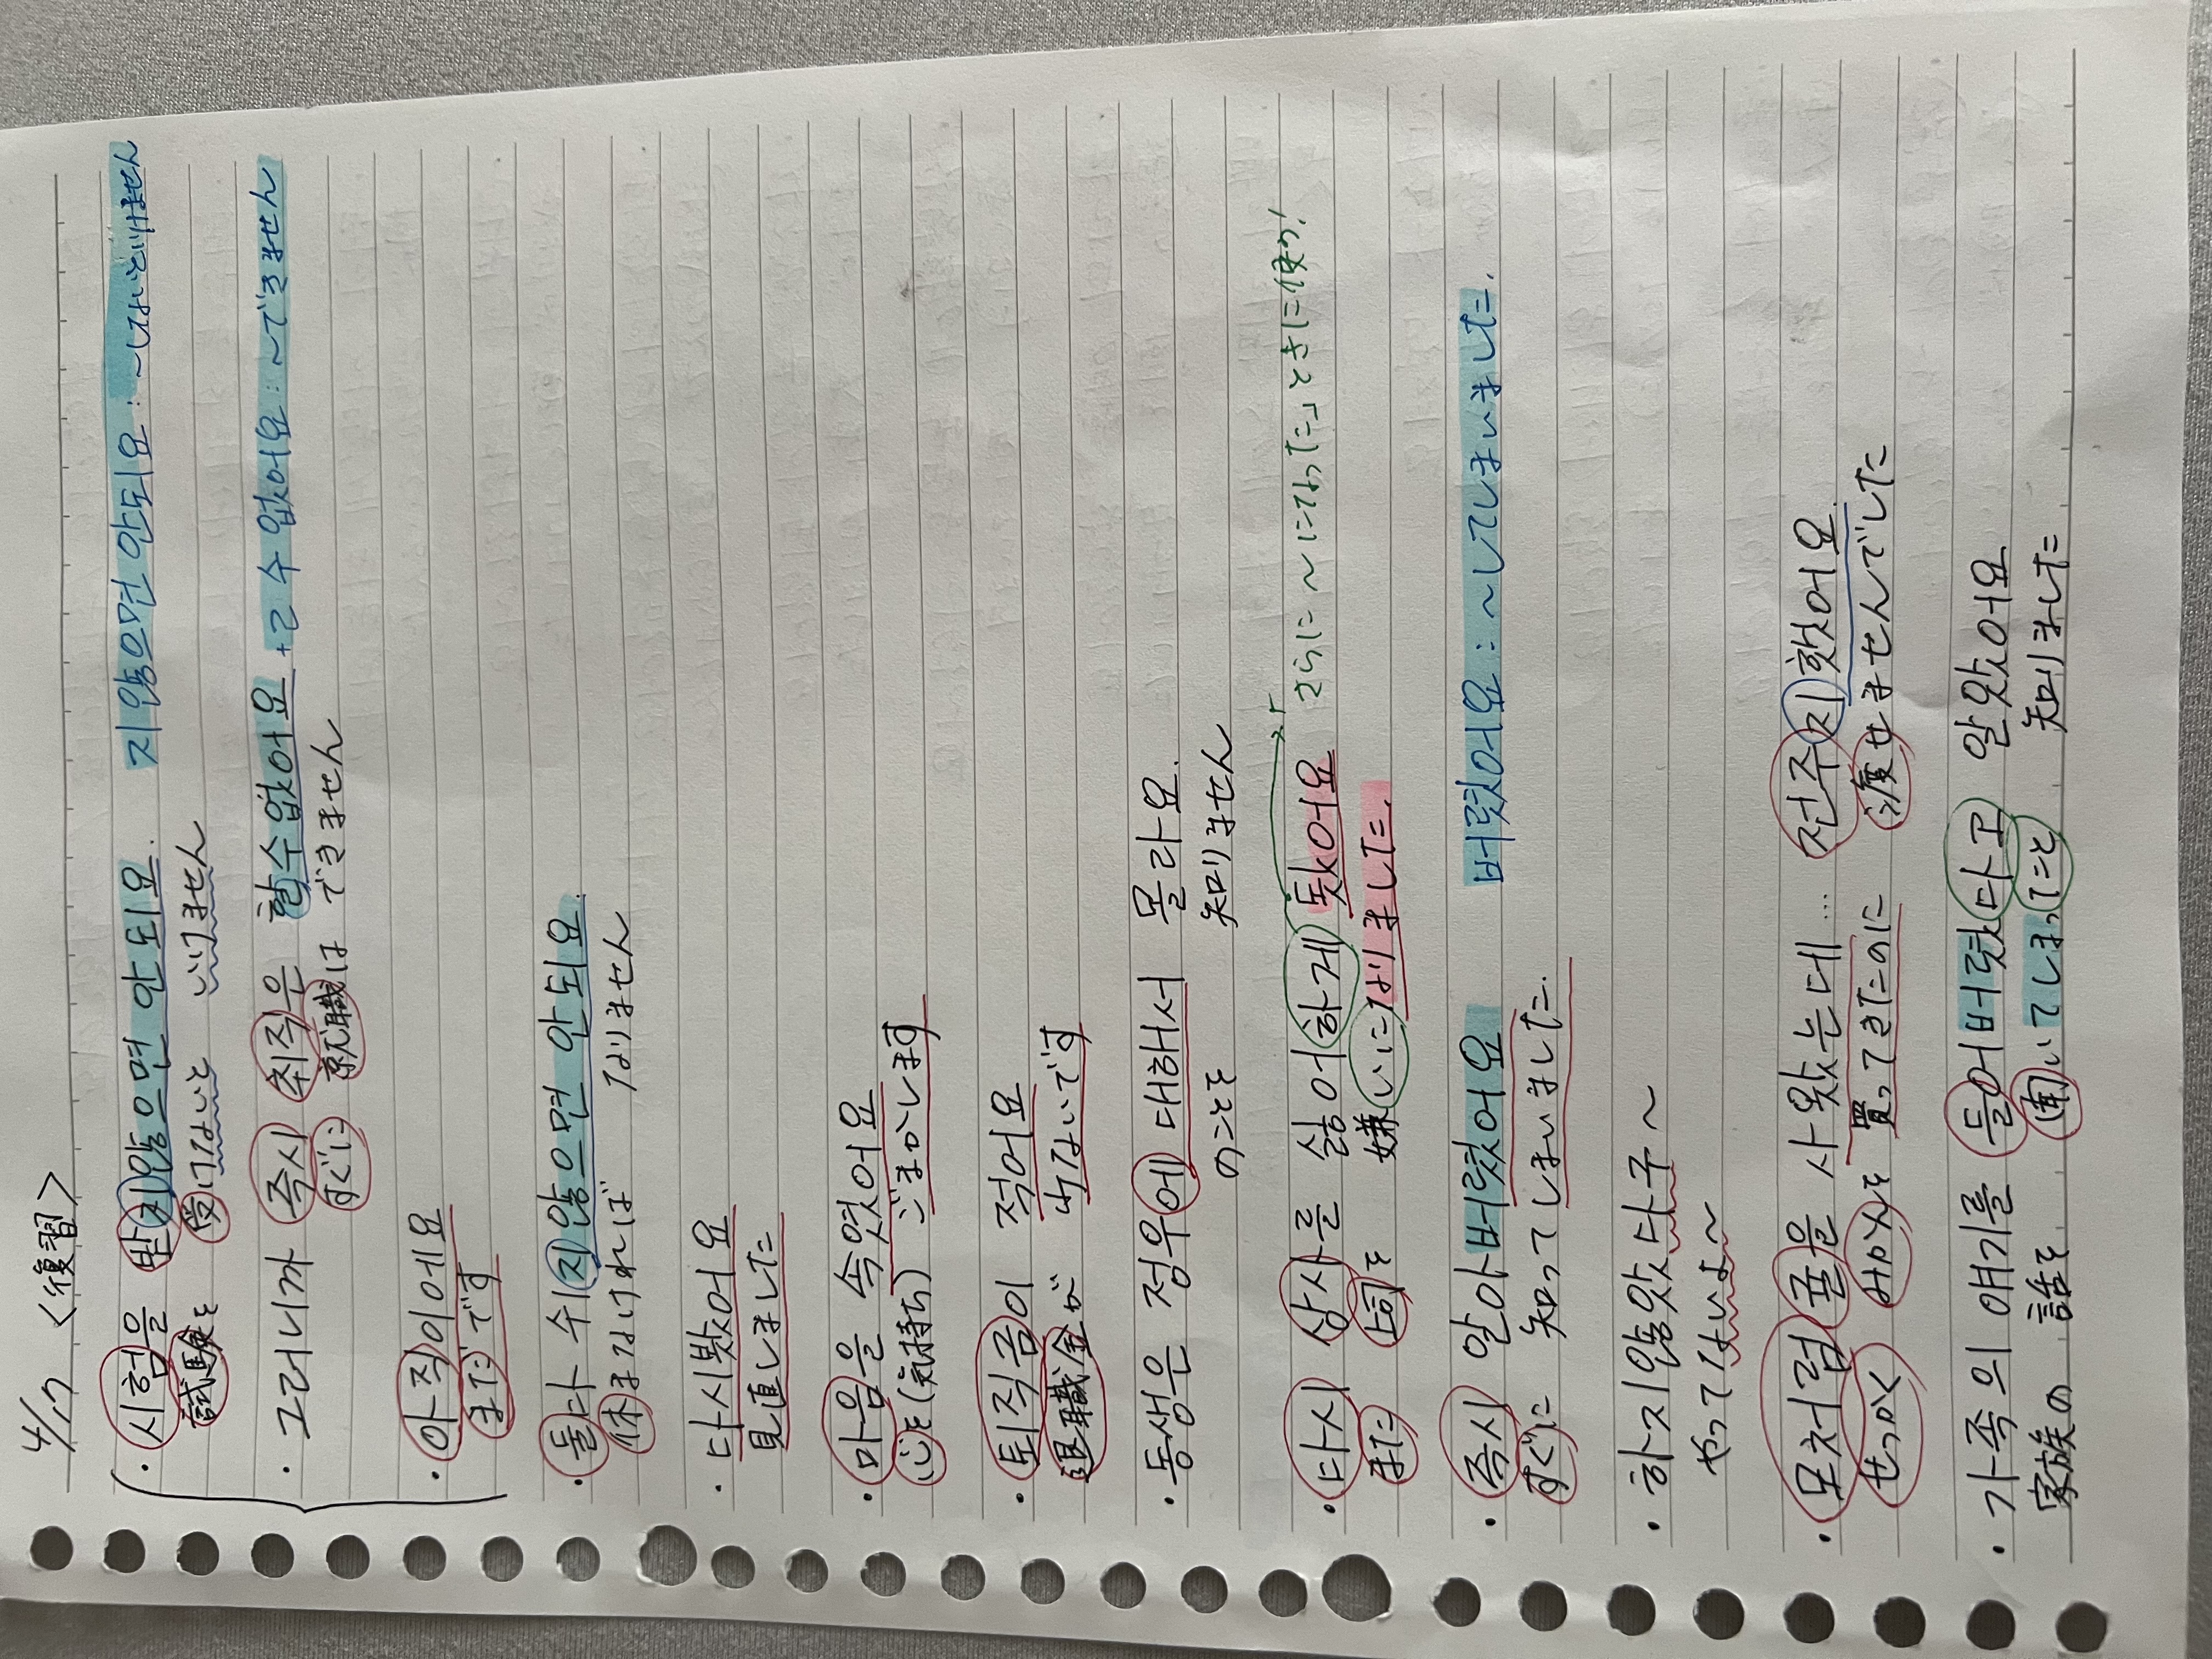 4/17 <復習>
・시험을 받지않으면 안되요. 지않으면안되요:~しないといけません
試験を 受けないと いけません
・그러니까 즉시 취직은 할수없어요 +ㄹ 수 없어요:~できません
すぐに 就職は できません
・아직이에요
まだです
・돌다 수지않으면 안되요.
休まなければ なりません
・다시봤어요
見直しました
・마음을 속였어요
心を(気持ち) ごまかします
・퇴직금이 적어요
退職金が 少ないです
・동생은 정우에 대해서 몰라요.
のことを 知りません
・다시 상사를 싫어하게 됐어요 さらに~になった」ときに使う!
また 上司を 嫌いに なりました.
・즉시 알아버렸어요 버렸어요:~してしまいました.
すぐに 知ってしまいました.
・하지않았다구~
やってないよ~
・모처럼 귤을 사왔는데... 전주지했어요
せっかく みかんを 買ってきたのに 渡せませんでした
・가족의 얘기를 들어버렸다고 알았어요
家族の 話を 聞いてしまったこと 知りました